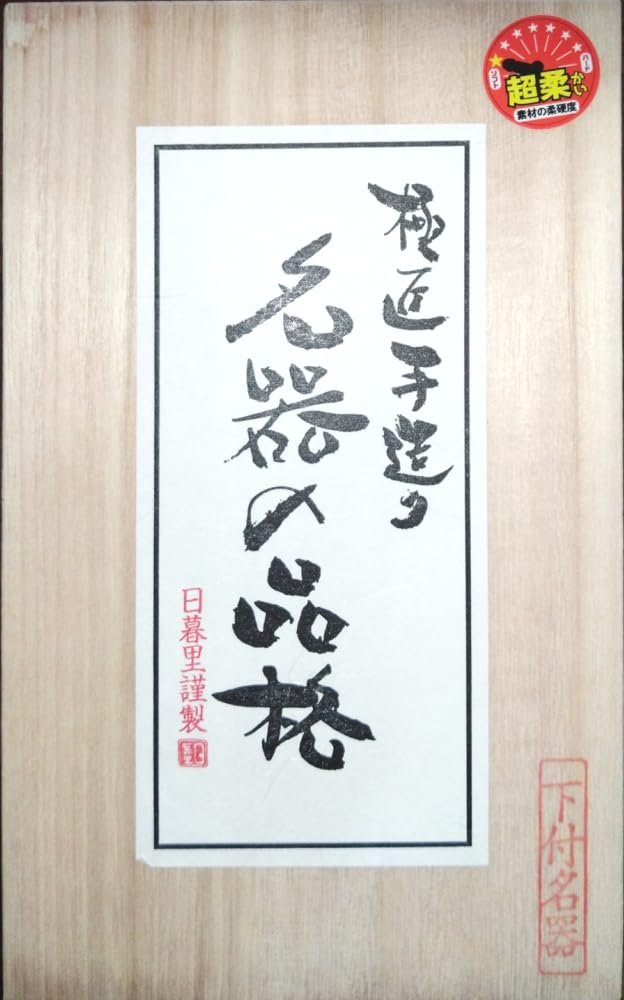 ソフト
ハード
超柔かい
素材の柔硬度
極匠手造り
名器の品格
日暮里謹製
下付名器